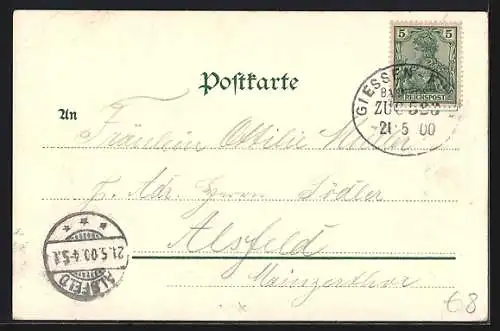 5 5
REICHSPOST
GIESSEN
ZUG 523
21 5 00
Postkarte
An
Fräulein Ottilie Müller
p. Adr. Herrn Födler
Alsfeld
Mainzerthor
ALSFELD
21.5.00.4-5N
68